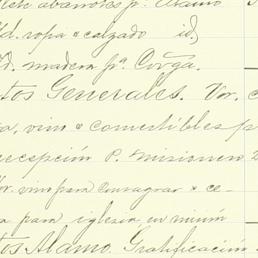 abarrotes pa. Alamo
Id. ropa & calzado id,
Id. madera pa. Covga.
tos Generales. Vor. c
a, vino & comestibles p
recepción P. misionero
Vor. vino para consagrar & ce-
a para iglesia en minún
tos Alamo. Gratificación